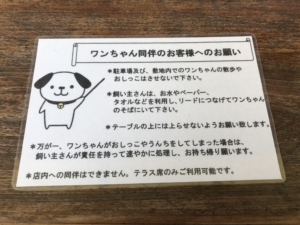 ワンちゃん同伴のお客様へのお願い
*駐車場及び、敷地内でのワンちゃんの散歩や
おしっこはさせないで下さい。
*飼い主さんは、お水やペーパー、
タオルなどを利用し、リードにつなげてワンちゃん
のそばにいて下さい。
*テーブルの上にはよらせないようお願い致します。
*万が一、ワンちゃんがおしっこやうんちをしてしまった場合は、
飼い主さんが責任を持って速やかに処理し、お持ち帰り願います。
*店内への同伴はできません。テラス席のみご利用可能です。